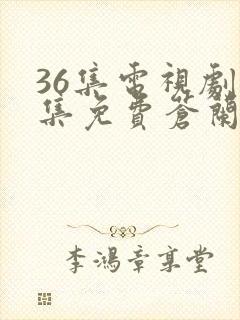 36集電視劇
集免費蒼蘭
李鴻章享堂